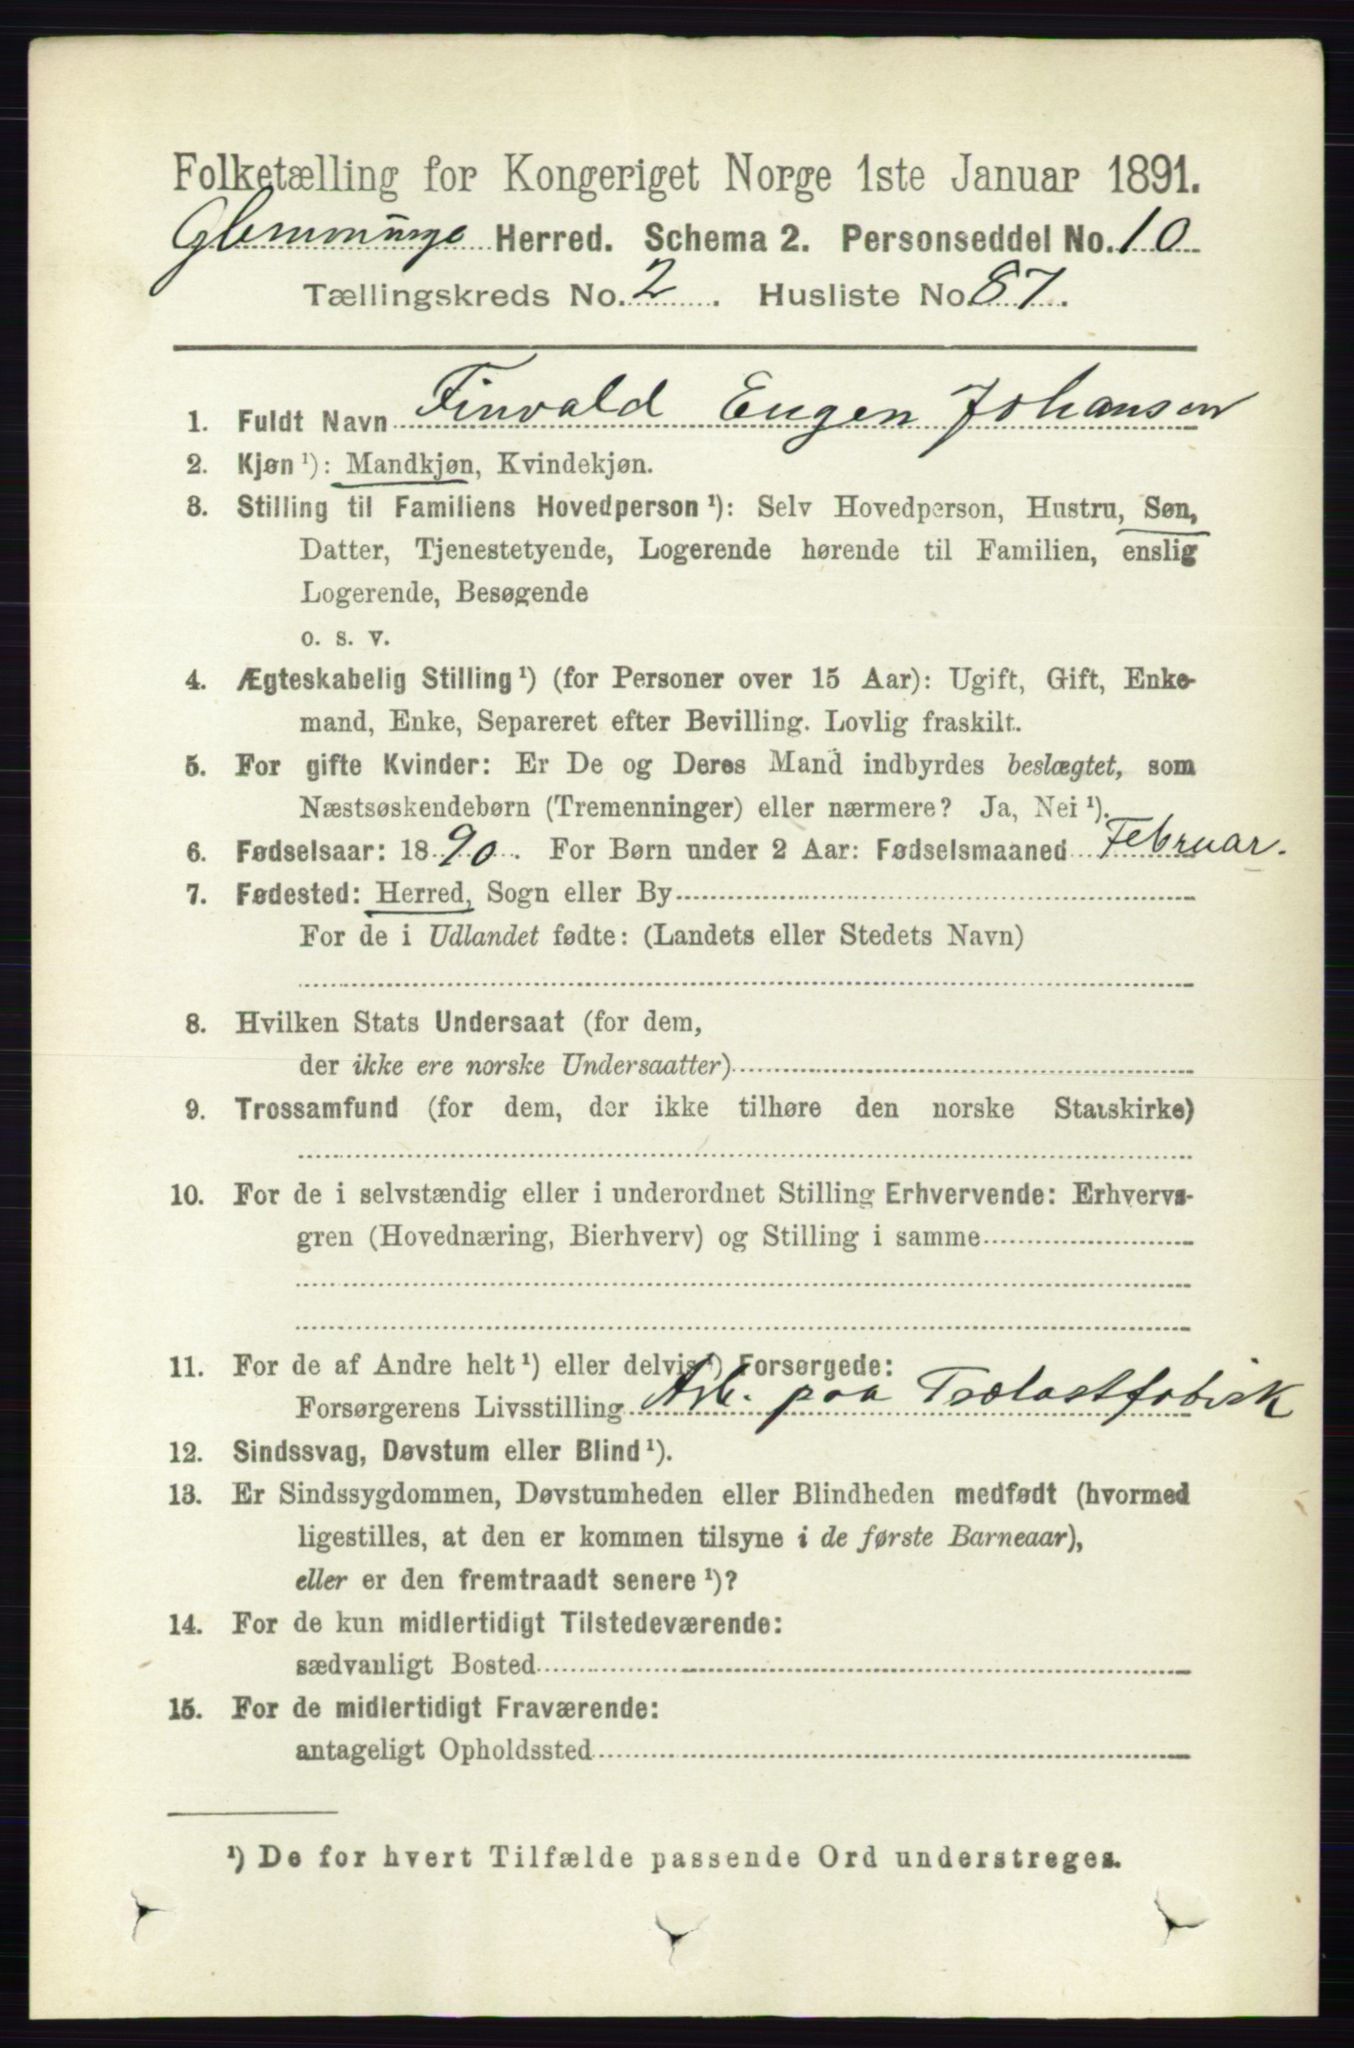 Folketælling for Kongeriget Norge 1ste Januar 1891.
Glemminge Herred. Schema 2. Personseddel No. 10
Tællingskreds No. 2. Husliste No. 87.
1. Fuldt Navn Finvald Eugen Johansen
2. Kjøn ¹): Mandkjøn, Kvindekjøn.
3. Stilling til Familiens Hovedperson ¹): Selv Hovedperson, Hustru, Søn,
Datter, Tjenestetyende, Logerende hørende til Familien, enslig
Logerende, Besøgende
o. s. v.
4. Ægteskabelig Stilling ¹) (for Personer over 15 Aar): Ugift, Gift, Enke-
mand, Enke, Separeret efter Bevilling. Lovlig fraskilt.
5. For gifte Kvinder: Er De og Deres Mand indbyrdes beslægtet, som
Næstsøskendebørn (Tremenninger) eller nærmere? Ja, Nei ¹).
6. Fødselsaar: 1890. For Børn under 2 Aar: Fødselsmaaned Februar.
7. Fødested: Herred, Sogn eller By
For de i Udlandet fødte: (Landets eller Stedets Navn)
8. Hvilken Stats Undersaat (for dem,
der ikke ere norske Undersaatter)
9. Trossamfund (for dem, der ikke tilhøre den norske Statskirke)
10. For de i selvstændig eller i underordnet Stilling Erhvervende: Erhvervs-
gren (Hovednæring, Bierhverv) og Stilling i samme
11. For de af Andre helt ¹) eller delvis ¹) Forsørgede:
Forsørgerens Livsstilling Arb. paa Trælastfabrik
12. Sindssvag, Døvstum eller Blind ¹).
13. Er Sindssygdommen, Døvstumheden eller Blindheden medfødt (hvormed
ligestilles, at den er kommen tilsyne i de første Barneaar),
eller er den fremtraadt senere ¹)?
14. For de kun midlertidigt Tilstedeværende:
sædvanligt Bosted
15. For de midlertidigt Fraværende:
antageligt Opholdssted
¹) De for hvert Tilfælde passende Ord understreges.